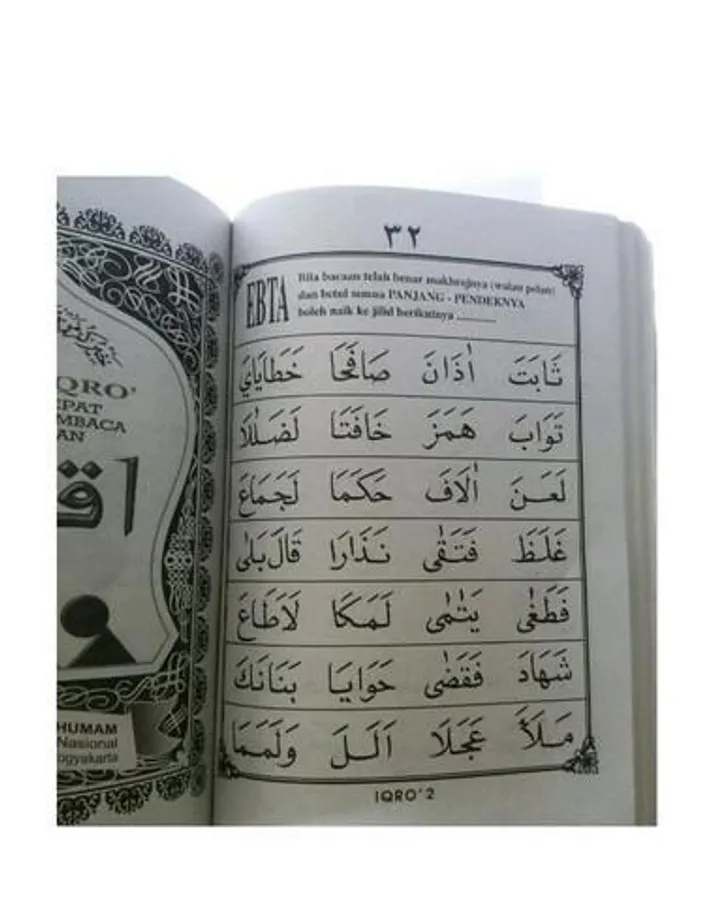 QRO'
EPAT
EMBACA
AN
HUMAM
Nasional
ogyakarta
٣٢
EBTA
Bila bacaan telah benar makhrajnya (walau pelan)
dan betul semua PANJANG - PENDEKNYA
boleh naik ke jilid berikutnya
ثَابَتَ أٰذَانَ صَافَحَا خَطَايَايَ
تَوَابَ هَمَزَ خَافَتَا لَضَلٰلَا
لَعَنَ أٰلَافَ حَكَمَا لَجَمَاعَ
غَلَظَ فَتَقٰى نَذَارَا قَالَ بَلٰى
فَطَغٰى يَتٰمٰى لَمَكَا لَاطَاعَ
شَهَادَ فَقَضٰى حَوَايَا بَنَانَكَ
مَلَأَ عَجَلَا اَلَلَ وَلَمَمَا
IQRO' 2